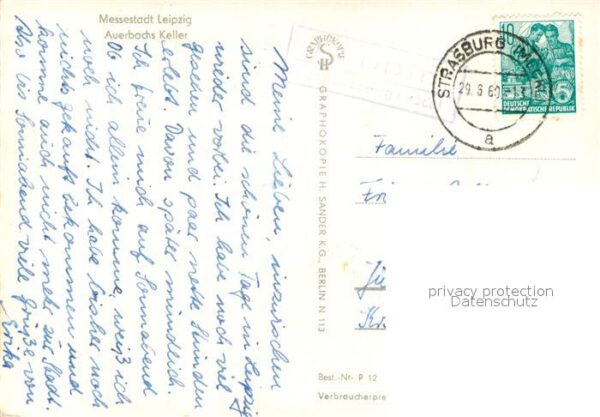 Messestadt Leipzig
Auerbachs Keller
Meine Lieben, inzwischen
sind die schönen Tage in Leipzig
wieder vorbei. Ich habe noch viel
gesehen und paar nette Stunden
erlebt. Davon später mündlich.
Ich freue mich auf Sonnabend
Ob ich allein komme, weiß ich
noch nicht. Ich habe bisher noch
nichts gekauft bekommen und
komme auch nicht mehr zur Stadt.
Also bis Sonnabend viele Grüße von
Erika
GRAPHOKOPIE
GRAPHOKOPIE H. SANDER K.G., BERLIN N 113
STRASBURG
29.6.60
a
DEUTSCHE
DEMOKRATISCHE REPUBLIK
5
Familie
privacy protection
Datenschutz
Best.-Nr. P 12
Verbraucherpre